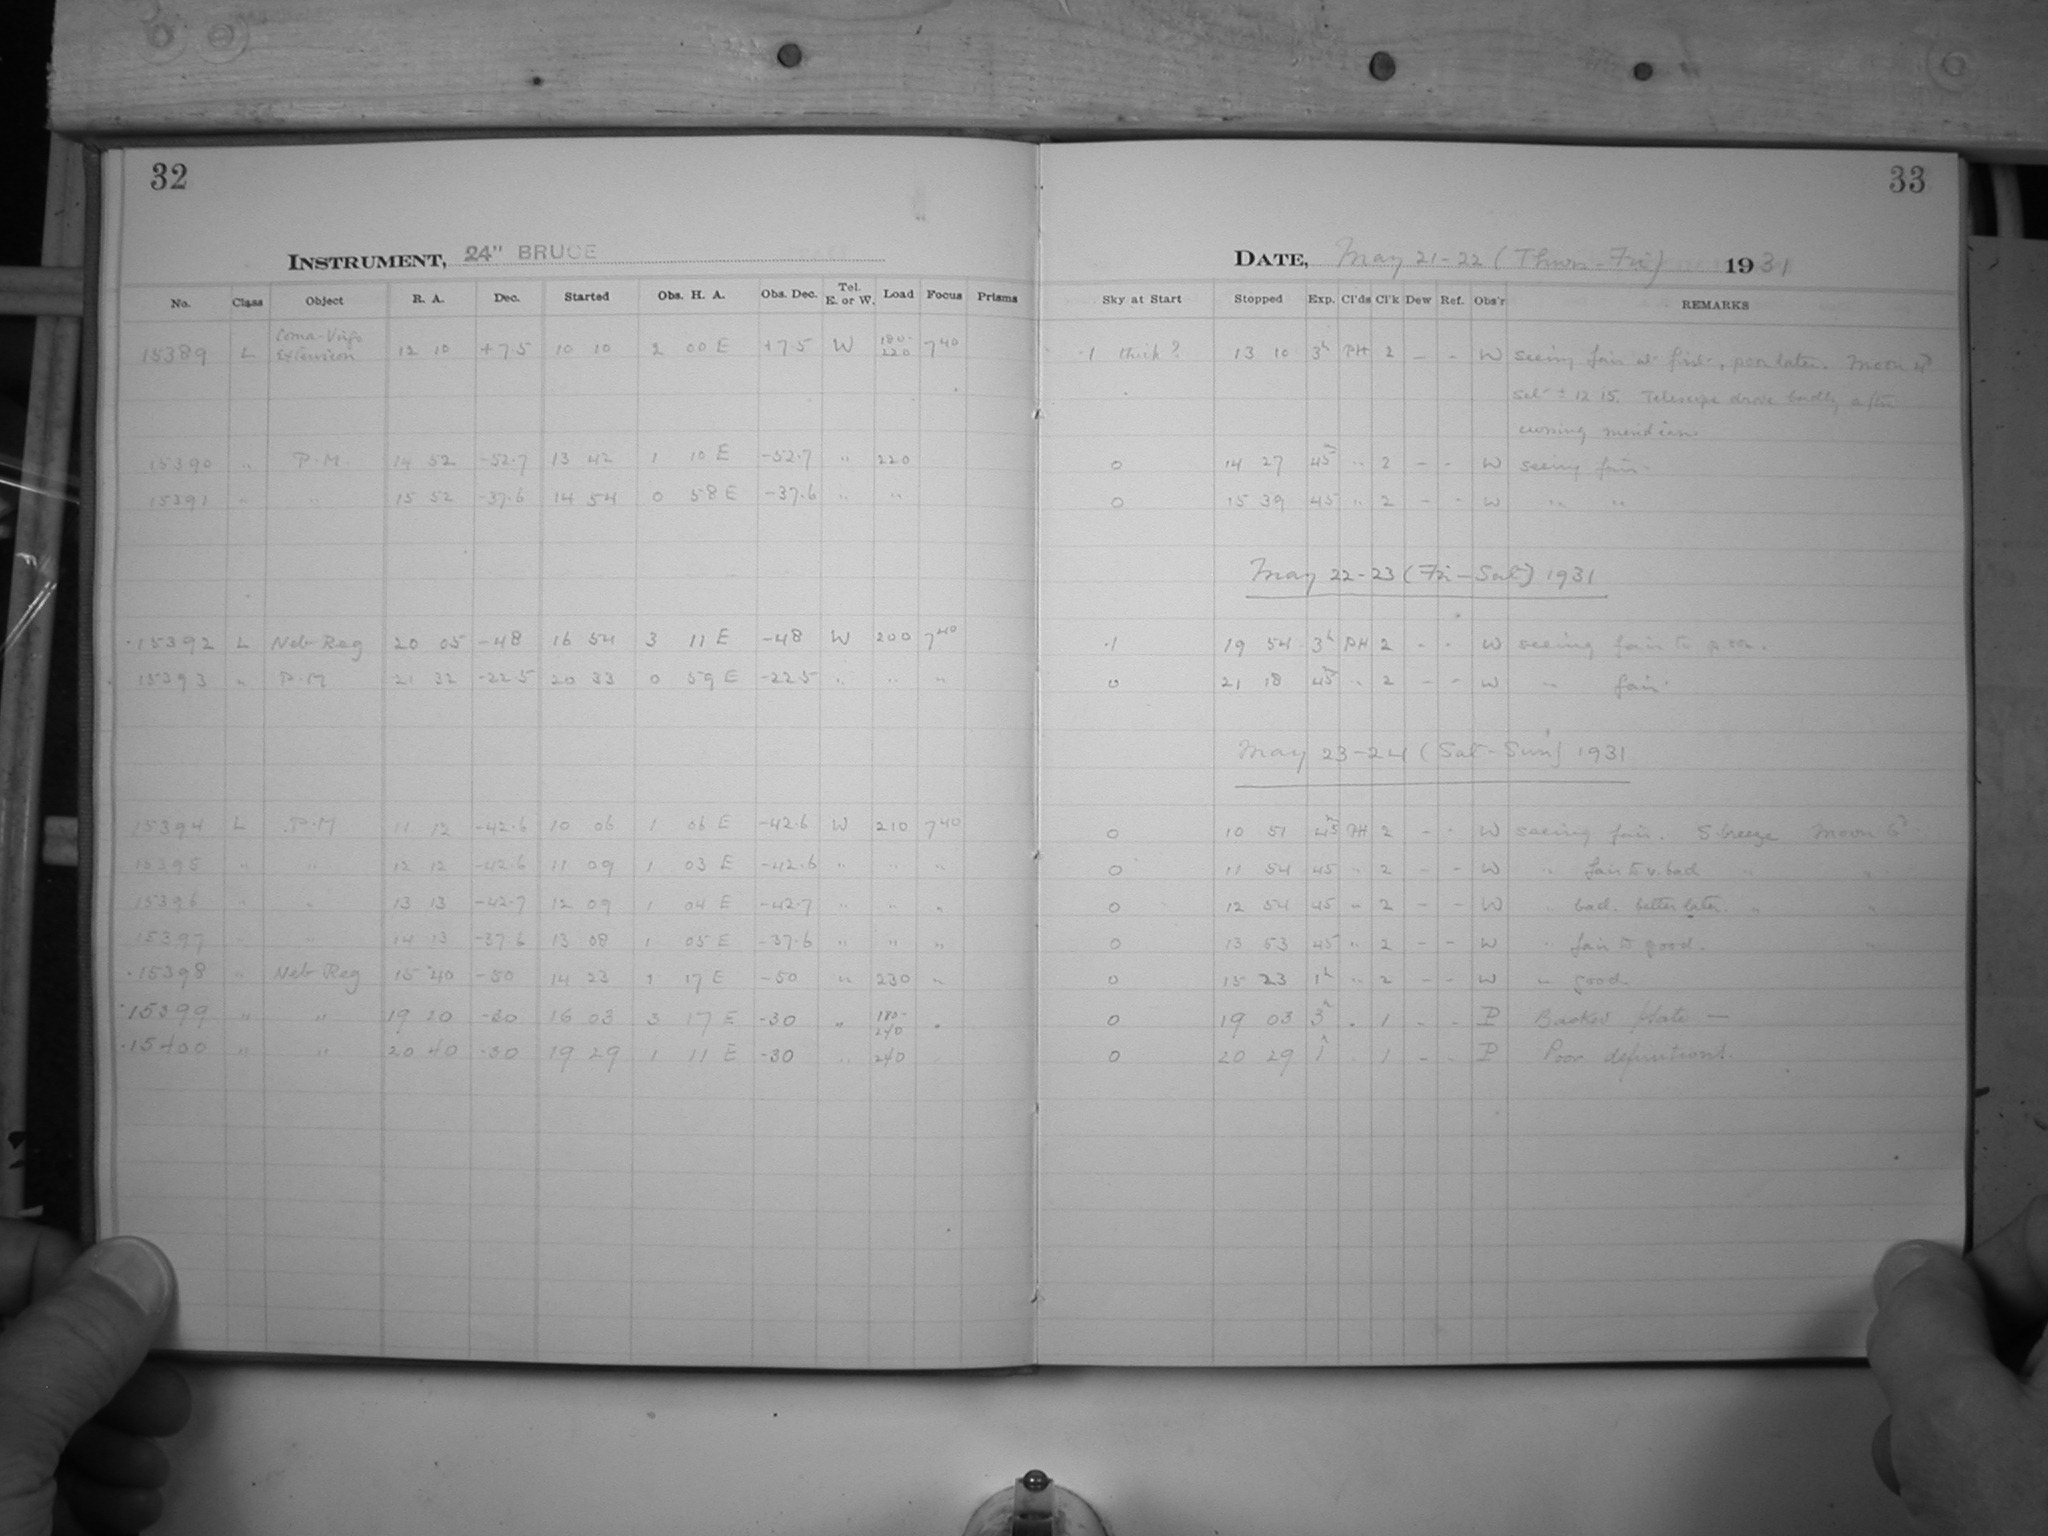 32
33
INSTRUMENT, 24" BRUCE
DATE, May 21-22 (Thurs-Fri) 1931
No. Class Object R. A. Dec. Started Obs. H. A. Obs. Dec. Tel. E. or W. Load Focus Prisms Sky at Start Stopped Exp. Cl'ds Cl'k Dew Ref. Obs'r REMARKS
15389 L Coma-Virgo Extension 12 10 +7.5 10 10 2 00 E +7.5 W 180-220 740 -1 thick? 13 10 3h PH 2 - - W seeing fair at first, poor later. Moon 4d
set ± 12 15. Telescope drove badly after
crossing meridian.
15390 " P.M. 14 52 -52.7 13 42 1 10 E -52.7 " 220 0 14 27 45m " 2 - - W seeing fair
15391 " " 15 52 -37.6 14 54 0 58 E -37.6 " " 0 15 39 45 " 2 - - W " "
May 22-23 (Fri-Sat) 1931
15392 L Neb Reg 20 05 -48 16 54 3 11 E -48 W 200 740 -1 19 54 3h PH 2 - - W seeing fair to poor.
15393 " P.M 21 32 -22.5 20 33 0 59 E -22.5 " " " 0 21 18 45m " 2 - - W " fair
May 23-24 (Sat-Sun) 1931
15394 L P.M 11 12 -42.6 10 06 1 06 E -42.6 W 210 740 0 10 51 45m PH 2 - - W seeing fair. S. breeze Moon 6d
15395 " " 12 12 -42.6 11 09 1 03 E -42.6 " " " 0 11 54 45 " 2 - - W " fair to v. bad " "
15396 " " 13 13 -42.7 12 09 1 04 E -42.7 " " " 0 12 54 45 " 2 - - W " bad. better later. " "
15397 " " 14 13 -37.6 13 08 1 05 E -37.6 " " " 0 13 53 45 " 2 - - W " fair to good. "
15398 " Neb Reg 15 40 -50 14 23 1 17 E -50 " 230 " 0 15 23 1h " 2 - - W " good
15399 " " 19 20 -30 16 03 3 17 E -30 " 180-240 " 0 19 03 3h " 1 - - P Backed plate —
15400 " " 20 40 -30 19 29 1 11 E -30 " 240 0 20 29 1h 1 - - P Poor definition.